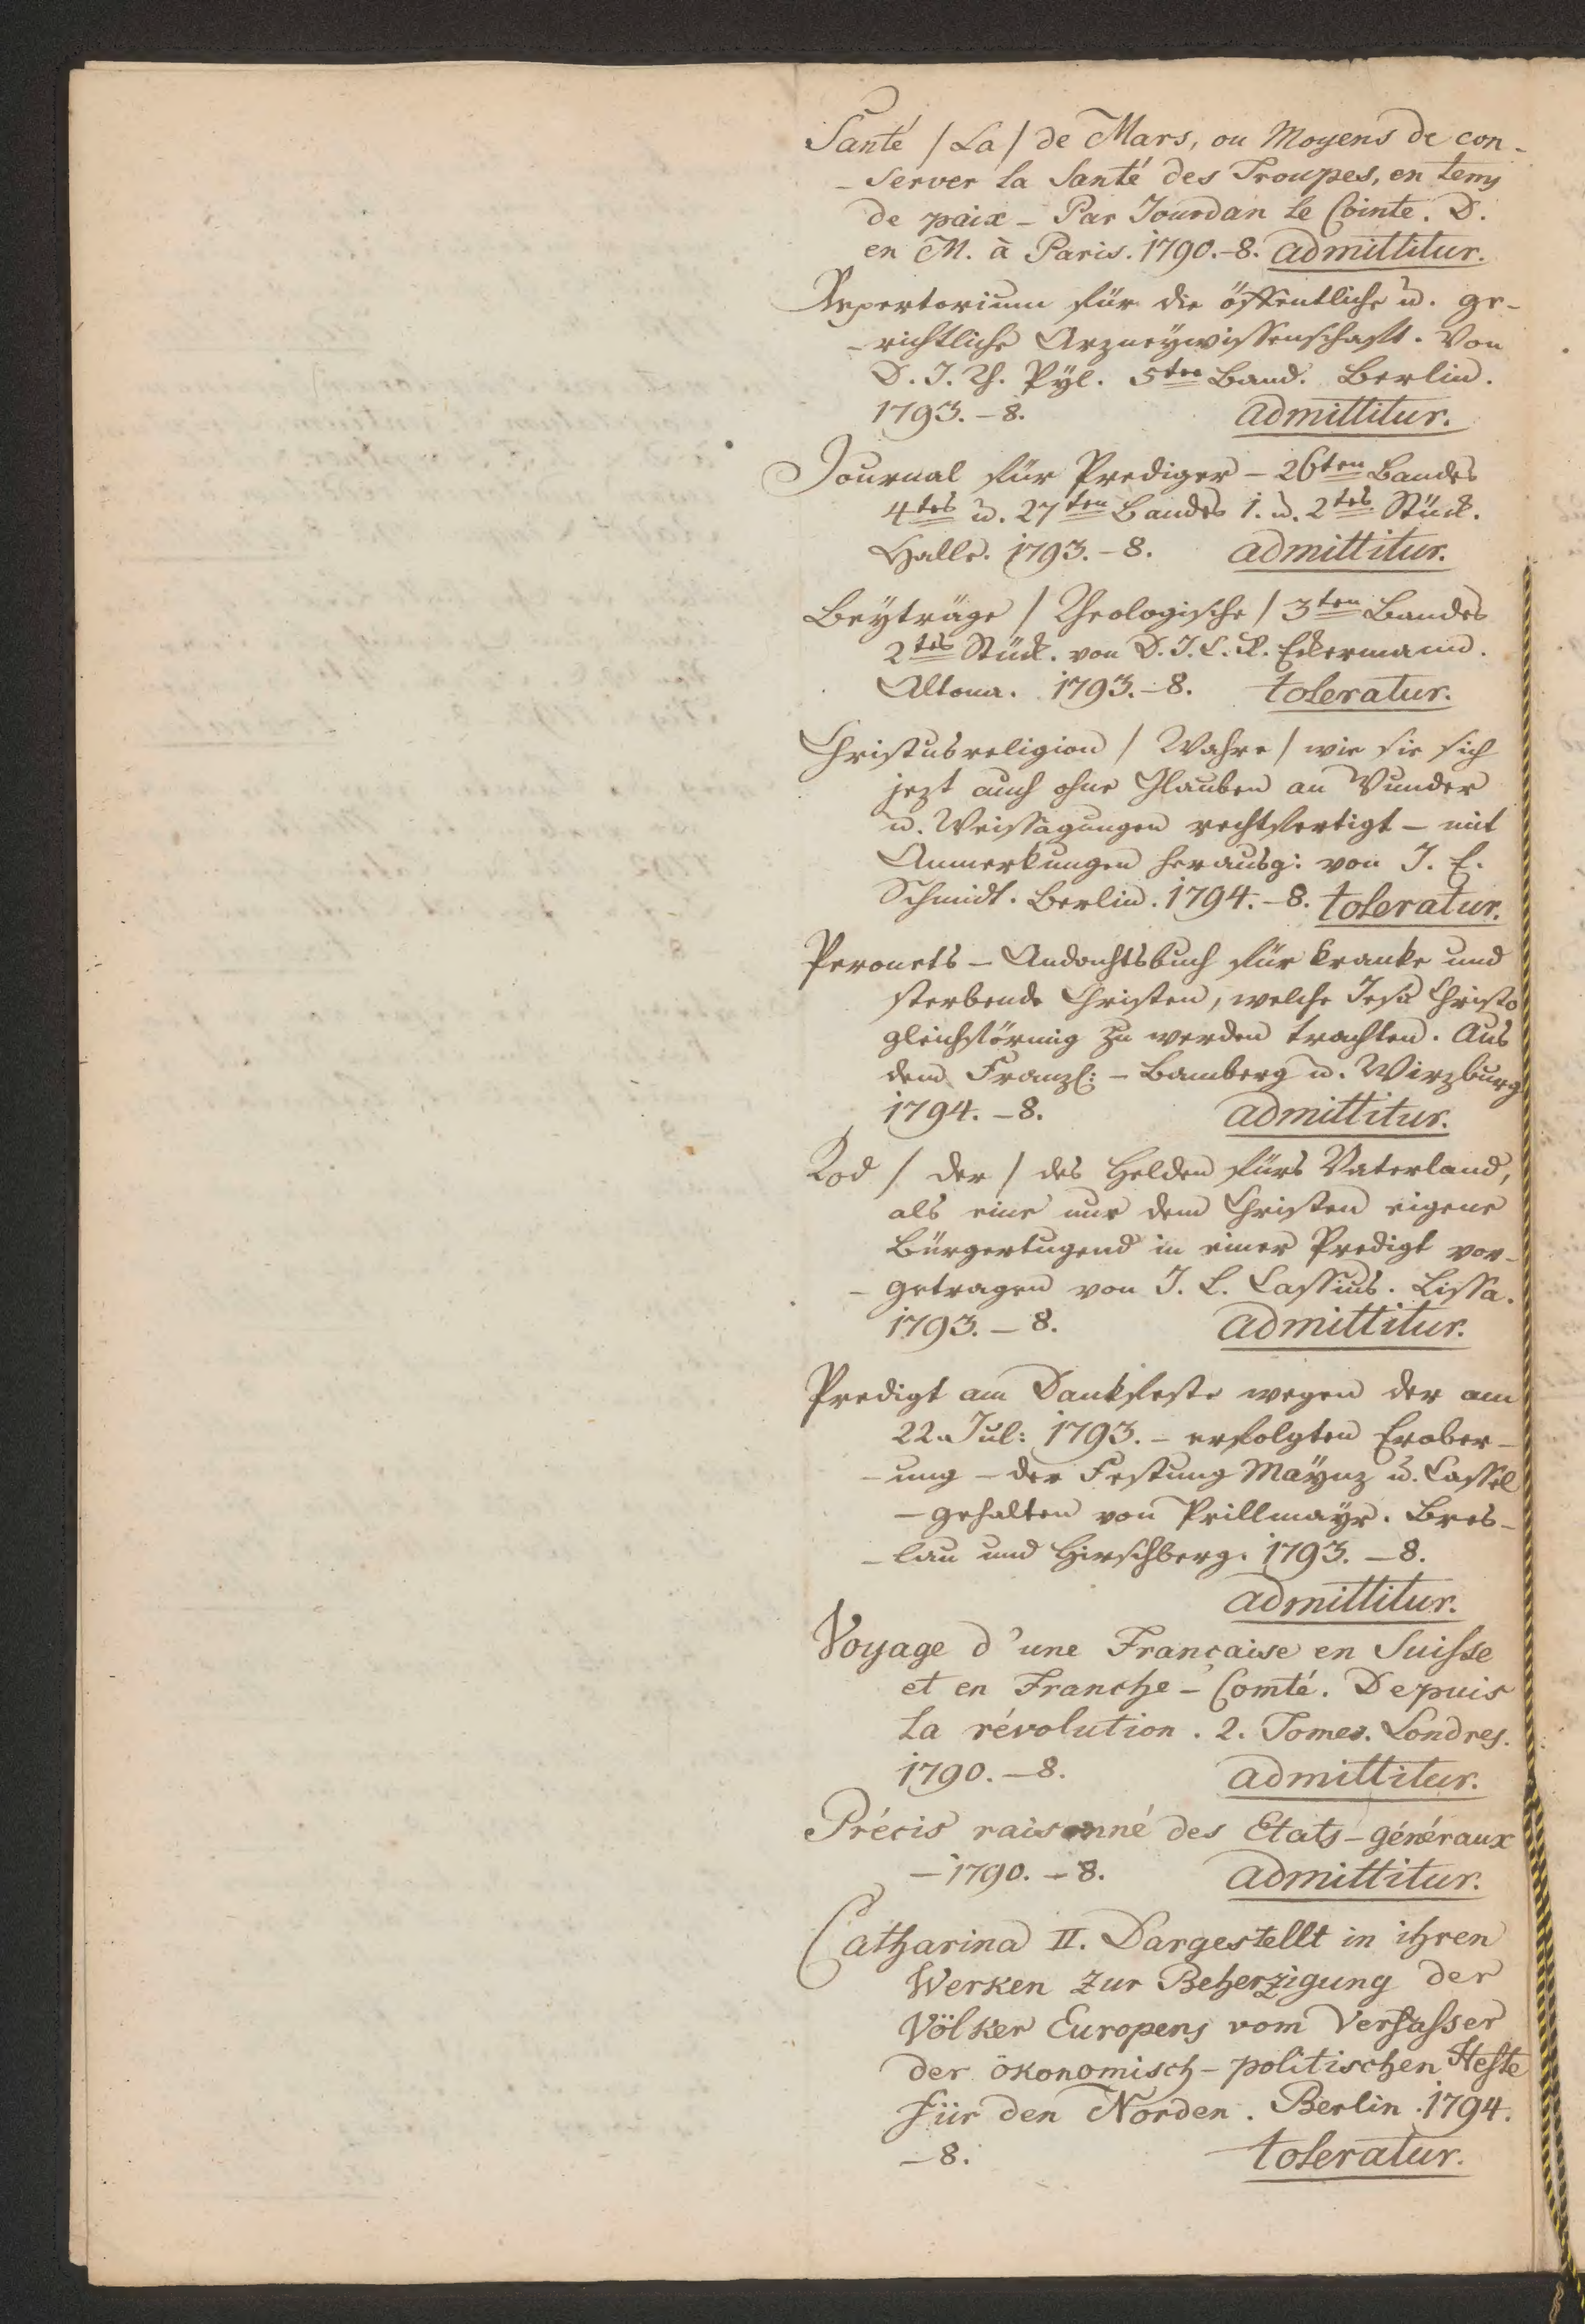 Santé / La / de Mars, ou Moyens de con-
-server la Santé des Troupes, en tems
de paix - Par Jourdan le Cointe. D.
en M. à Paris. 1790.-8. admittitur.
Repertorium für die öffentliche u. ge-
-richtliche Arzneywissenschaft. Von
D. J. Th. Pyl. 5ten Band. Berlin.
1793.-8. admittitur.
Journal für Prediger - 26ten Bandes
4tes u. 27ten Bandes 1. u. 2tes Stück.
Halle. 1793.-8. admittitur.
Beyträge / Theologische / 3ten Bandes
2tes Stück. von D. J. C. R. Eckermann.
Altona. 1793.-8. toleratur.
Christusreligion / Wahre / wie sie sich
jezt auch ohne Glauben an Wunder
u. Weissagungen rechtfertigt - mit
Anmerkungen herausg: von J. E.
Schmidt. Berlin. 1794.-8. toleratur.
Peronets - Andachtsbuch für kranke und
sterbende Christen, welche Jesu Christo
gleichförmig zu werden trachten. Aus
dem Franz: - Bamberg u. Wirzburg
1794.-8. admittitur.
Tod / der / des Helden fürs Vaterland,
als eine nur dem Christen eigene
Bürgertugend in einer Predigt vor-
-getragen von J. L. Cassius. Lissa.
1793.-8. admittitur.
Predigt am Dankfeste wegen der am
22. Jul: 1793. - erfolgten Erober-
-ung - der Festung Maynz u. Cassel
- gehalten von Prillmayr. Bres-
-lau und Hirschberg. 1793.-8.
admittitur.
Voyage d'une Française en Suisse
et en Franche-Comté. Depuis
la révolution. 2. Tomes. Londres.
1790.-8. admittitur.
Précis raisonné des Etats-généraux
-1790.-8. admittitur.
Catharina II. Dargestellt in ihren
Werken zur Beherzigung der
Völker Europens vom Verfasser
der ökonomisch-politischen Hefte
für den Norden. Berlin. 1794.
-8. toleratur.